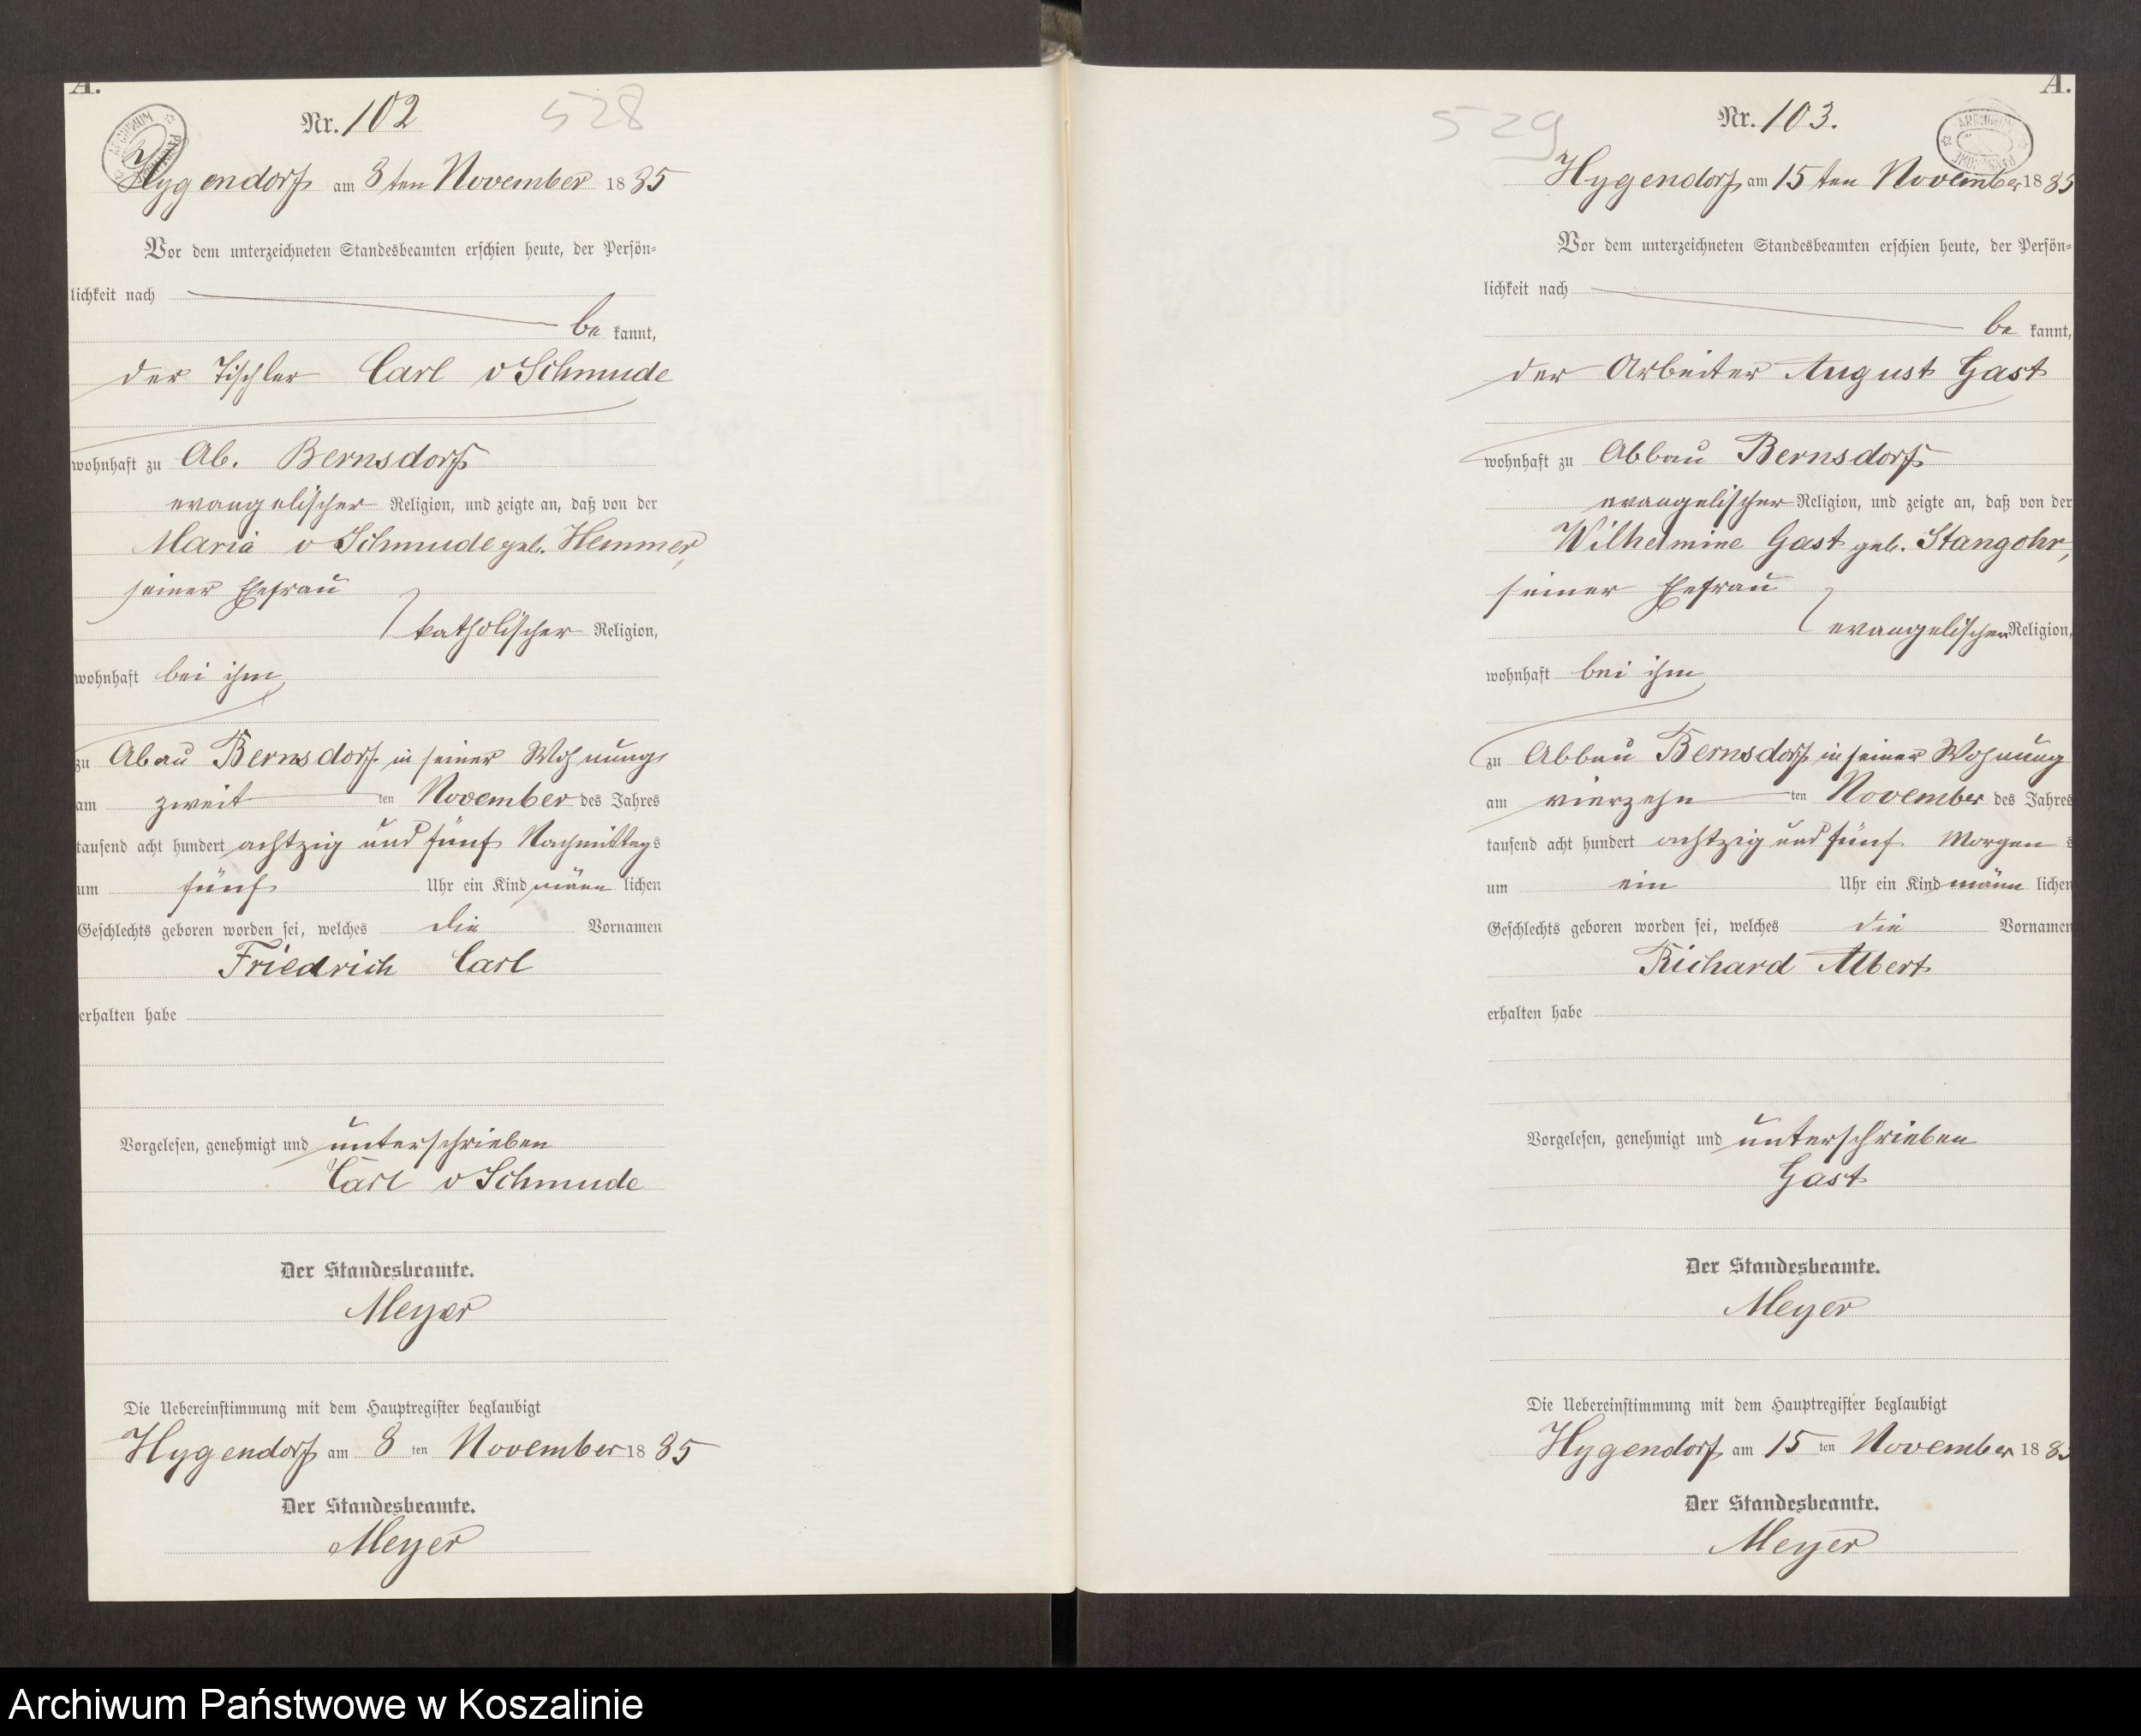 A.
Nr. 102
528
Hygendorf am 8ten November 1885
Vor dem unterzeichneten Standesbeamten erschien heute, der Persön-
lichkeit nach
be kannt,
der Tischler Carl v Schmude
wohnhaft zu Ab. Bernsdorf
evangelischer Religion, und zeigte an, daß von der
Maria v Schmude geb. Hemmer,
seiner Ehefrau
katholischer Religion,
wohnhaft bei ihm,
zu Abau Bernsdorf in seiner Wohnung
am zweit ten November des Jahres
tausend acht hundert achtzig und fünf Nachmittags
um fünf Uhr ein Kind männ lichen
Geschlechts geboren worden sei, welches die Vornamen
Friedrich Carl
erhalten habe
Vorgelesen, genehmigt und unterschrieben
Carl v Schmude
Der Standesbeamte.
Meyer
Die Uebereinstimmung mit dem Hauptregister beglaubigt
Hygendorf am 8 ten November 1885
Der Standesbeamte.
Meyer
A.
529
Nr. 103.
ARCHIWUM
Hygendorf am 15ten November 1885
Vor dem unterzeichneten Standesbeamten erschien heute, der Persön-
lichkeit nach
be kannt,
der Arbeiter August Gast
wohnhaft zu Abbau Bernsdorf
evangelischer Religion, und zeigte an, daß von der
Wilhelmine Gast geb. Stangohr,
seiner Ehefrau
evangelischer Religion,
wohnhaft bei ihm,
zu Abbau Bernsdorf in seiner Wohnung
am vierzehn ten November des Jahres
tausend acht hundert achtzig und fünf Morgen s
um ein Uhr ein Kind männ lichen
Geschlechts geboren worden sei, welches die Vornamen
Richard Albert
erhalten habe
Vorgelesen, genehmigt und unterschrieben
Gast
Der Standesbeamte.
Meyer
Die Uebereinstimmung mit dem Hauptregister beglaubigt
Hygendorf am 15 ten November 1885
Der Standesbeamte.
Meyer
Archiwum Państwowe w Koszalinie